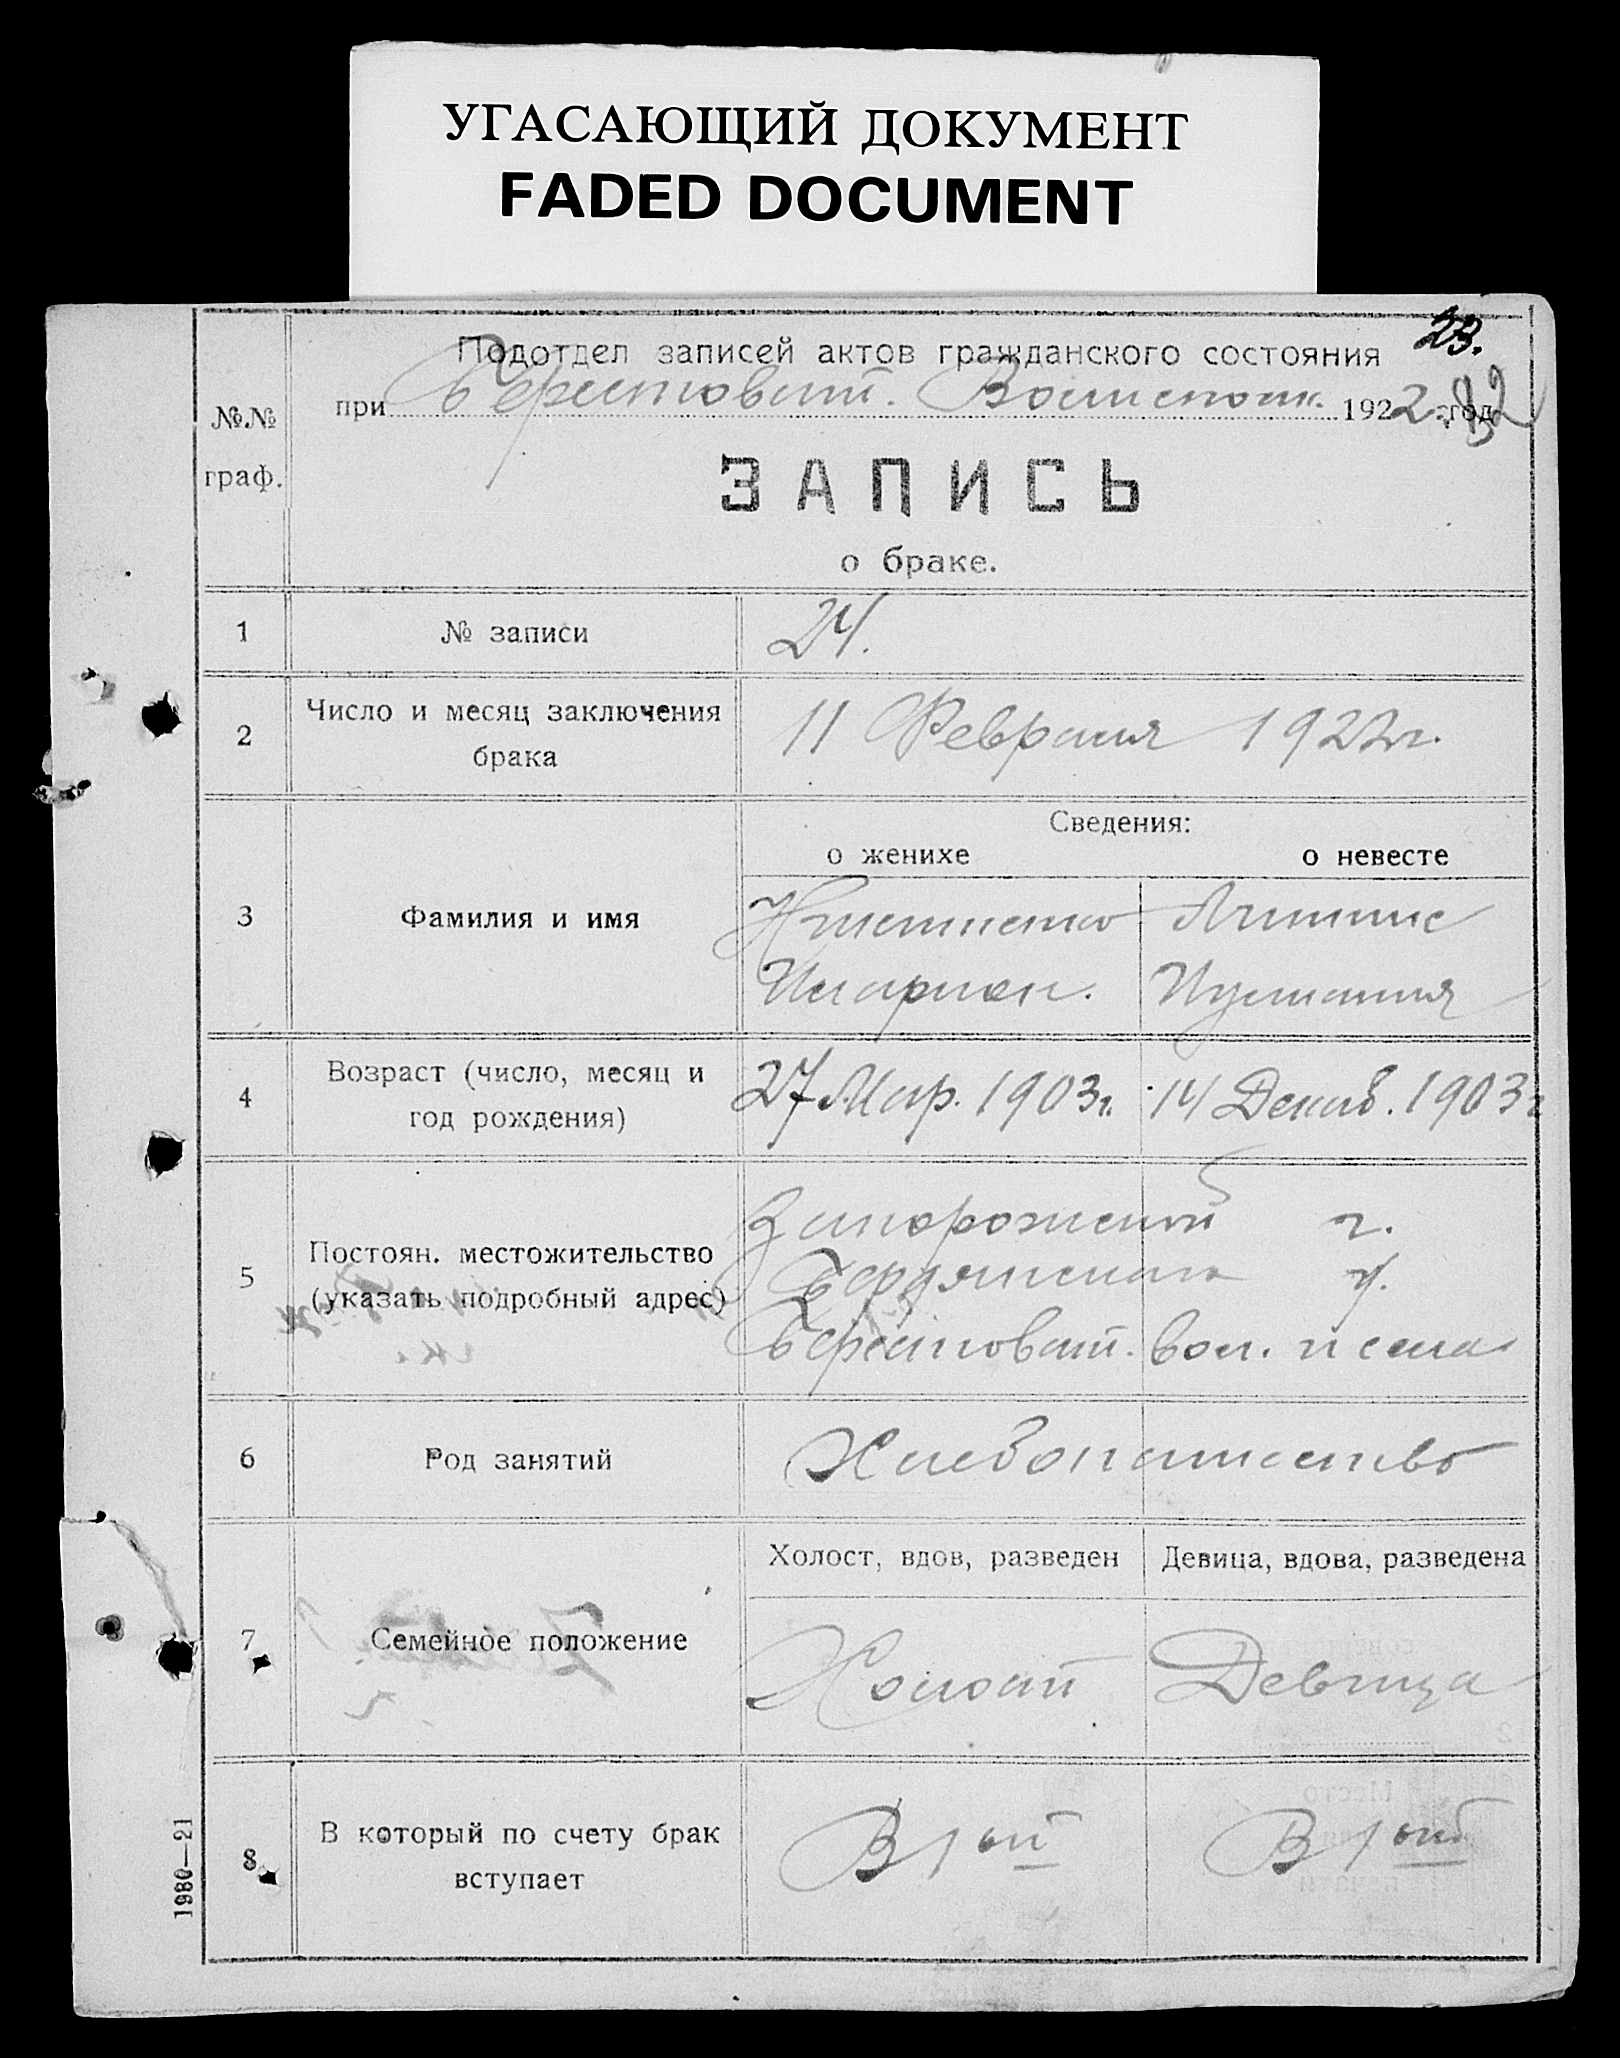 УГАСАЮЩИЙ ДОКУМЕНТ
FADED DOCUMENT
23.
Подотдел записей актов гражданского состояния
при Берестоват. Волисполк. 1922 год
№№
граф.
ЗАПИСЬ
о браке.
1 № записи 24.
2 Число и месяц заключения
брака
11 Февраля 1922 г.
Сведения:
о женихе о невесте
3 Фамилия и имя
Иларион.
4 Возраст (число, месяц и
год рождения)
27 Мар. 1903 г. 14 Декаб. 1903 г
5 Постоян. местожительство
(указать подробный адрес)
Запорожской г.
Бердянского у.
Берестоват. вол. и села
6 Род занятий Хлебопашество
Холост, вдов, разведен Девица, вдова, разведена
7 Семейное положение Холост Девица
8 В который по счету брак
вступает
В 1ый В 1ый
1980—21